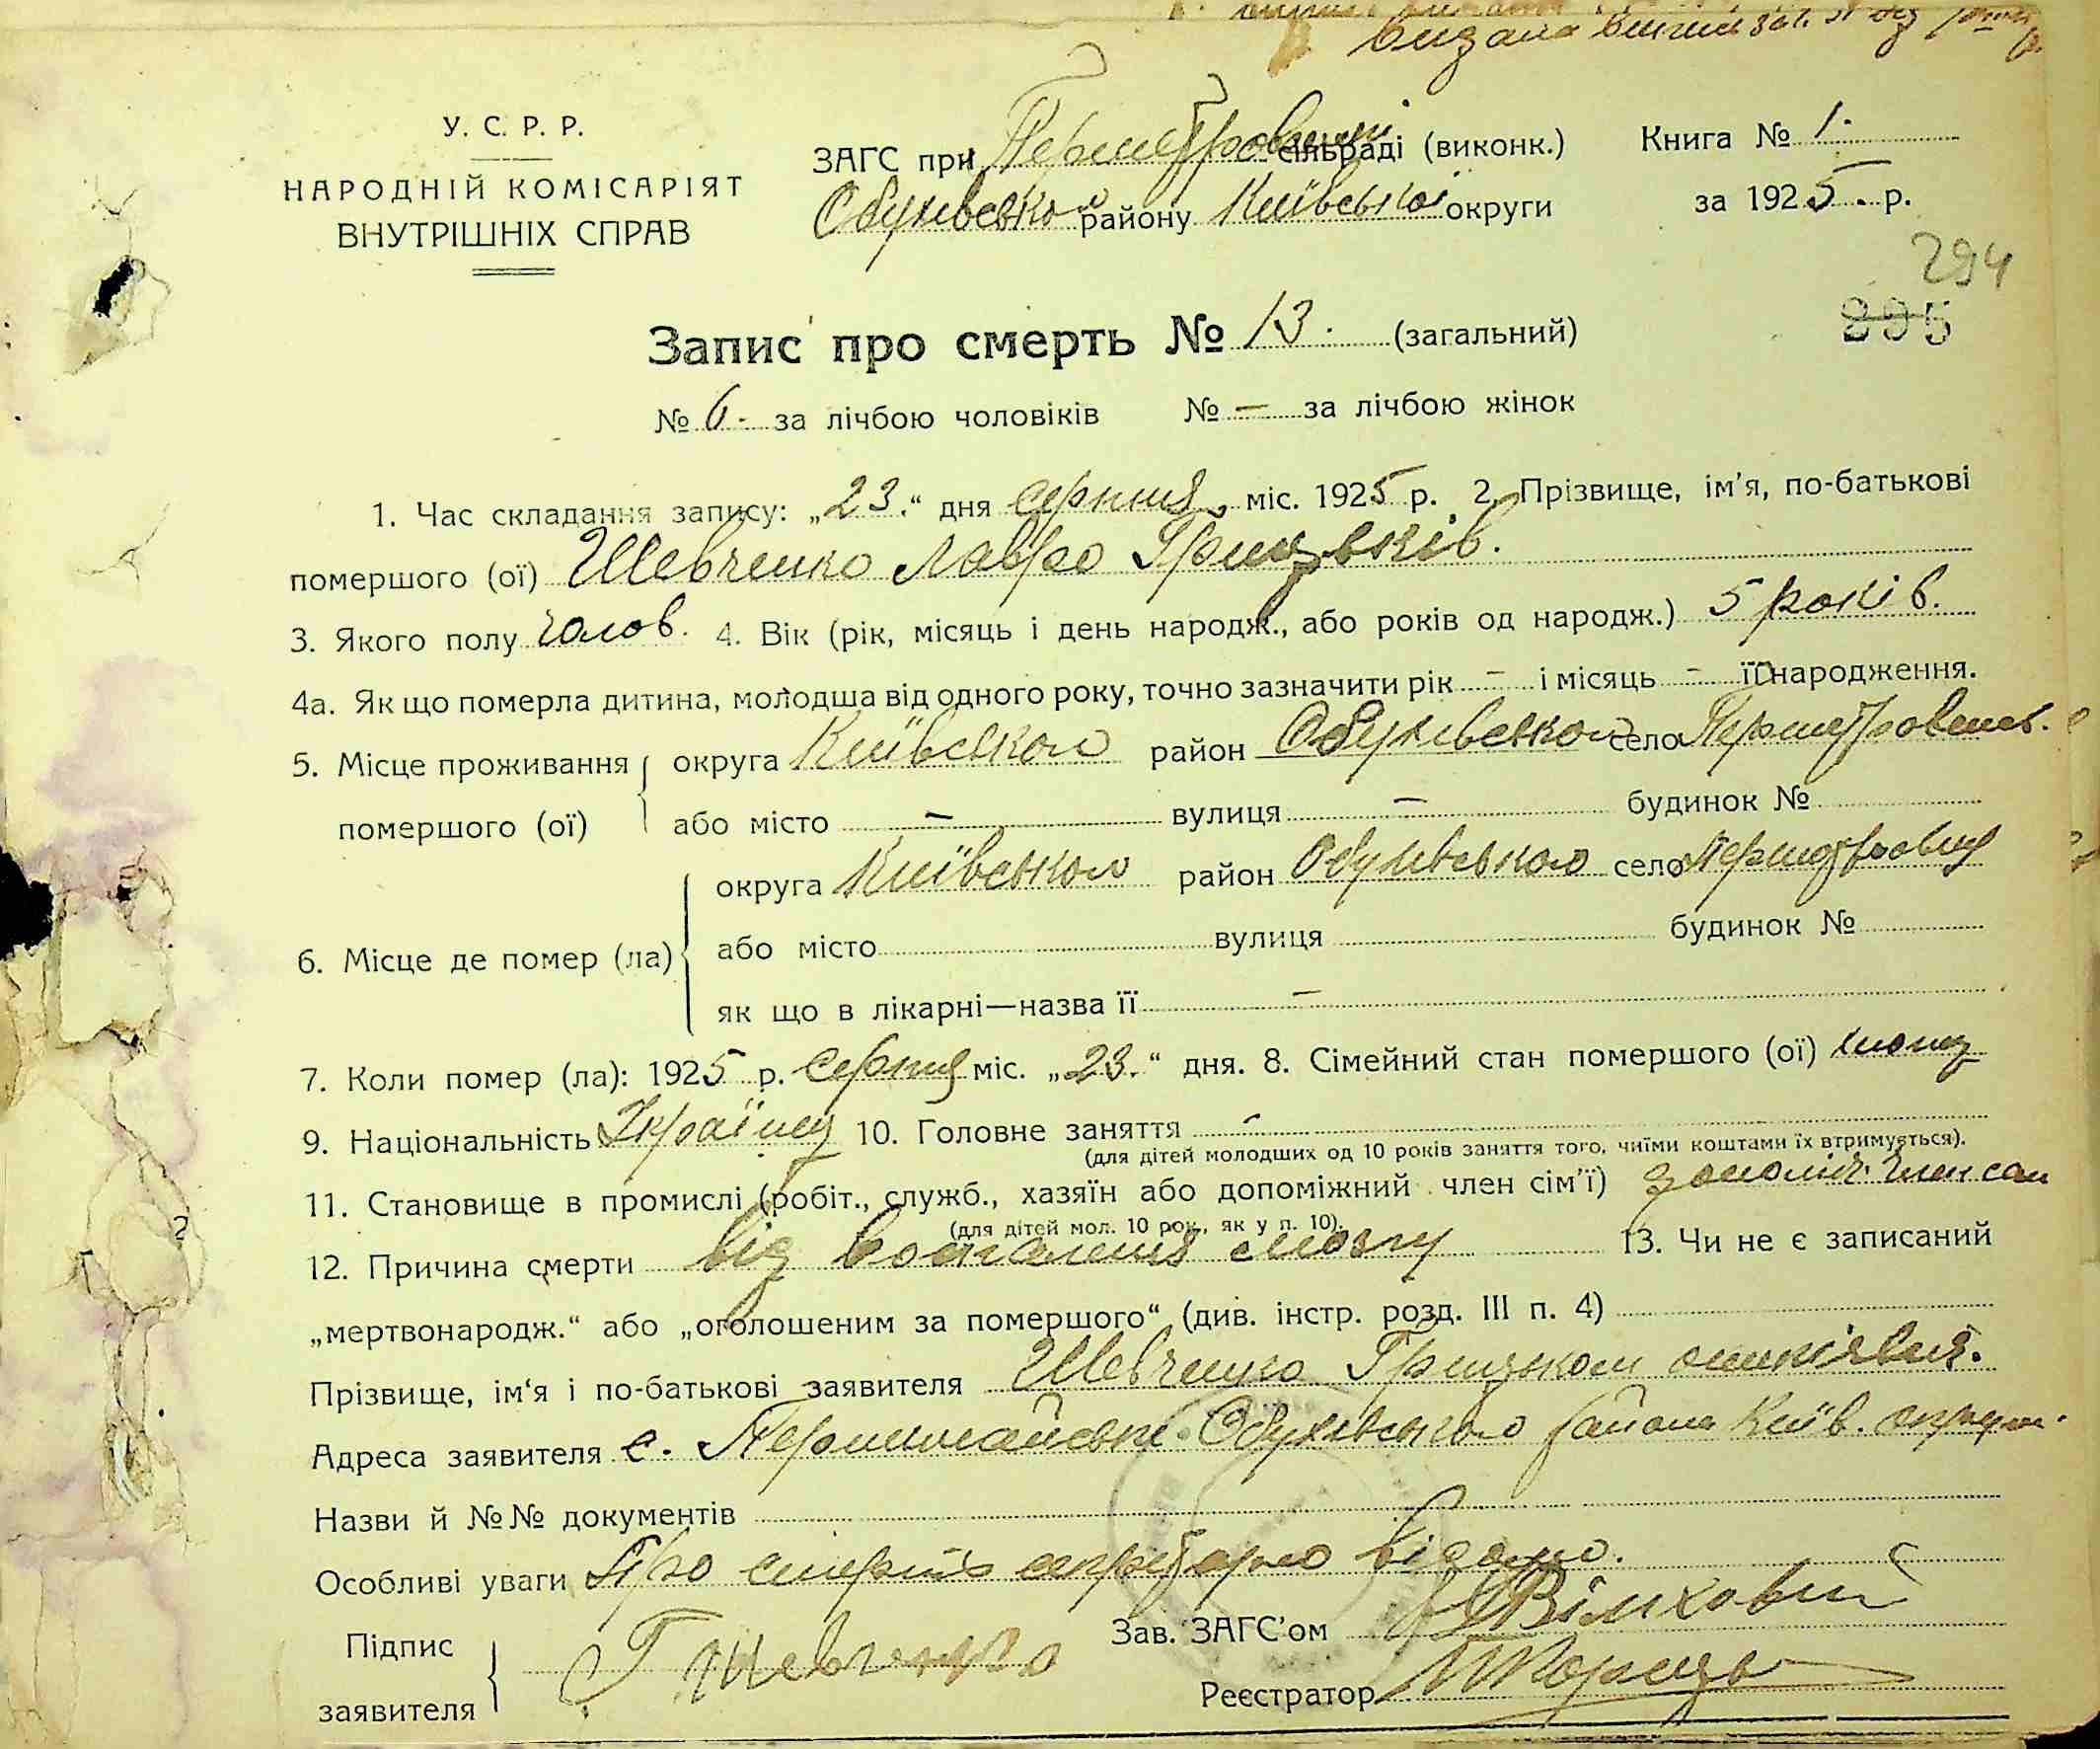 видана
У. С. Р. Р.
НАРОДНІЙ КОМІСАРІЯТ
ВНУТРІШНІХ СПРАВ
ЗАГС при сільраді (виконк.)
Обухівського району Київської округи
Книга № 1.
за 1925 р.
294
295
Запис про смерть № 13. (загальний)
№ 6. за лічбою чоловіків № — за лічбою жінок
1. Час складання запису: „23.“ дня серпня міс. 1925 р. 2. Прізвище, ім'я, по-батькові
помершого (ої) Шевченко Лавро Грицьків.
3. Якого полу чолов. 4. Вік (рік, місяць і день народж., або років од народж.) 5 років.
4а. Як що померла дитина, молодша від одного року, точно зазначити рік – і місяць – її народження.
5. Місце проживання округа Київського район Обухівського село
помершого (ої) або місто – вулиця – будинок №
округа Київського район Обухівського село
6. Місце де помер (ла) або місто вулиця будинок №
як що в лікарні—назва її –
7. Коли помер (ла): 1925 р. серпня міс. „23.“ дня. 8. Сімейний стан помершого (ої)
9. Національність Україньц 10. Головне заняття -
(для дітей молодших од 10 років заняття того, чиїми коштами їх втримується).
11. Становище в промислі (робіт., служб., хазяїн або допоміжний член сім'ї)
(для дітей мол. 10 рок., як у п. 10).
12. Причина смерти від воспаления мозгу 13. Чи не є записаний
„мертвонародж.“ або „оголошеним за помершого“ (див. інстр. розд. III п. 4)
Прізвище, ім'я і по-батькові заявителя Шевченко Грицьком
Адреса заявителя с. Обухівського району Київ. округи
Назви й №№ документів
Особливі уваги Про смерть відомо.
Підпис
заявителя Г Шевченко
Зав. ЗАГС'ом
Реєстратор